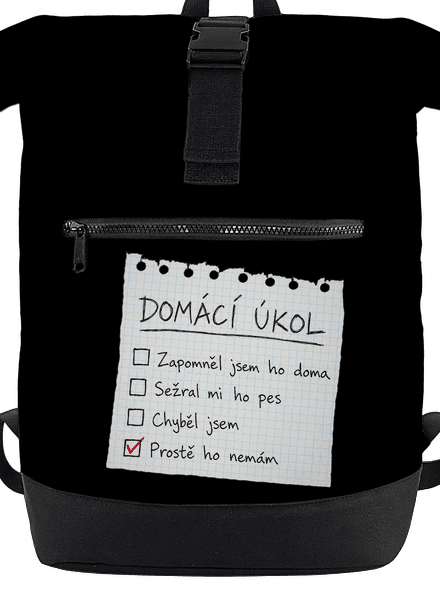 DOMÁCÍ ÚKOL
Zapomněl jsem ho doma
Sežral mi ho pes
Chyběl jsem
Prostě ho nemám